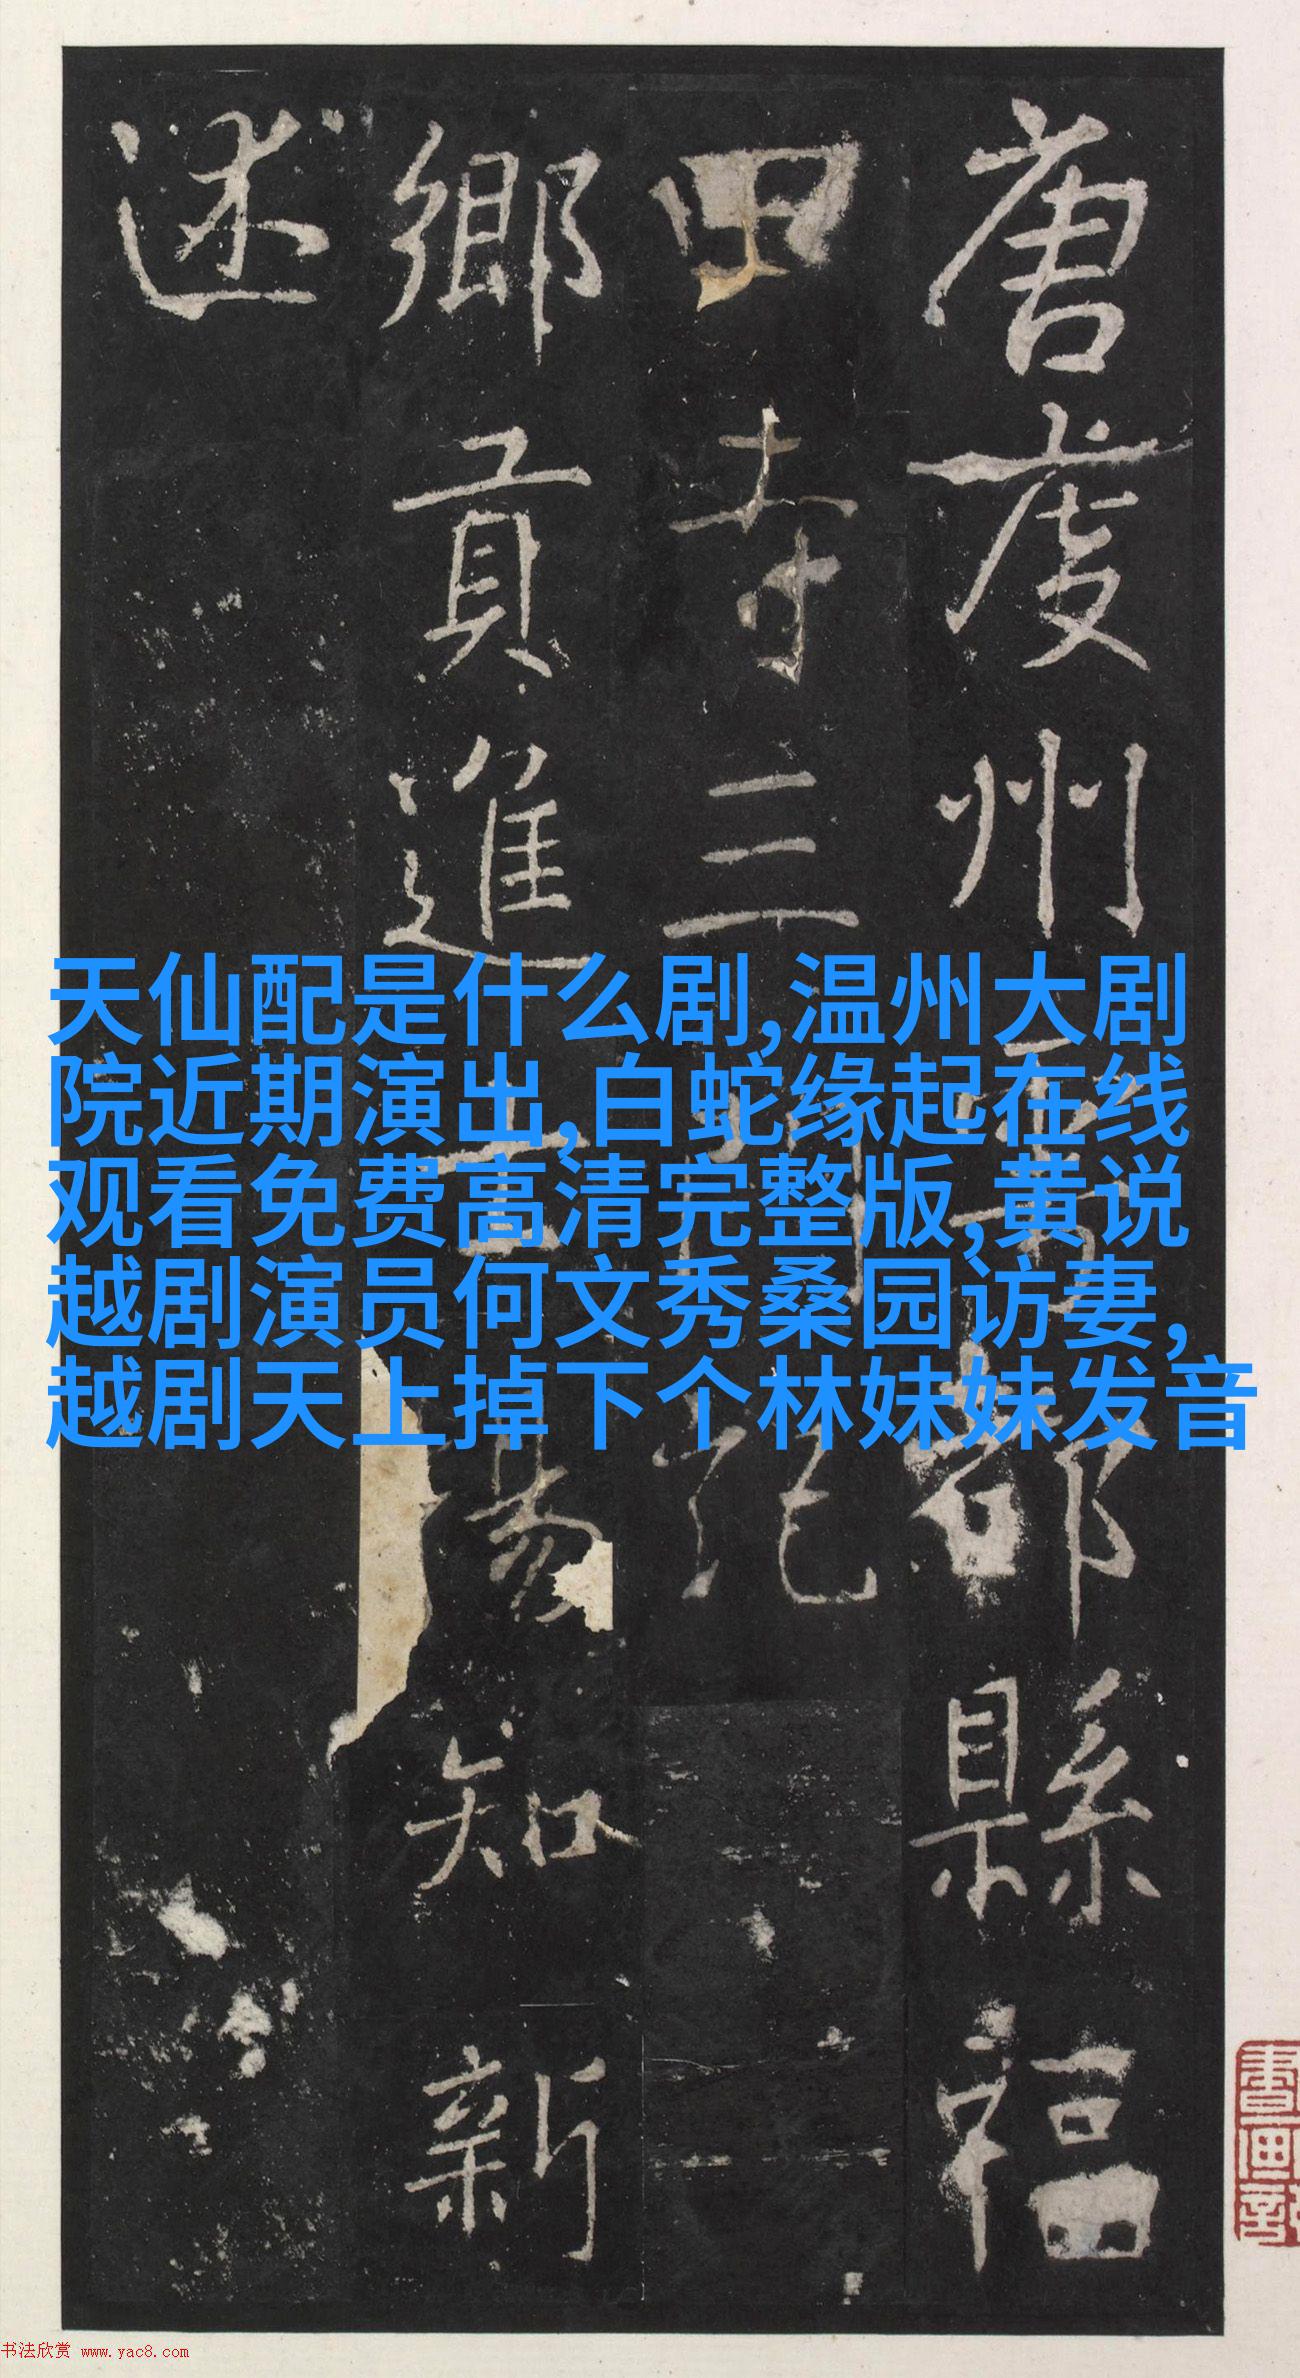 唐虔州雩都縣福
田寺三門記
鄉貢進士楊知新
述
天仙配是什么剧,温州大剧
院近期演出,白蛇缘起在线
观看免费高清完整版,黄说
越剧演员何文秀桑园访妻,
越剧天上掉下个林妹妹发音
书法欣赏 www.yac8.com